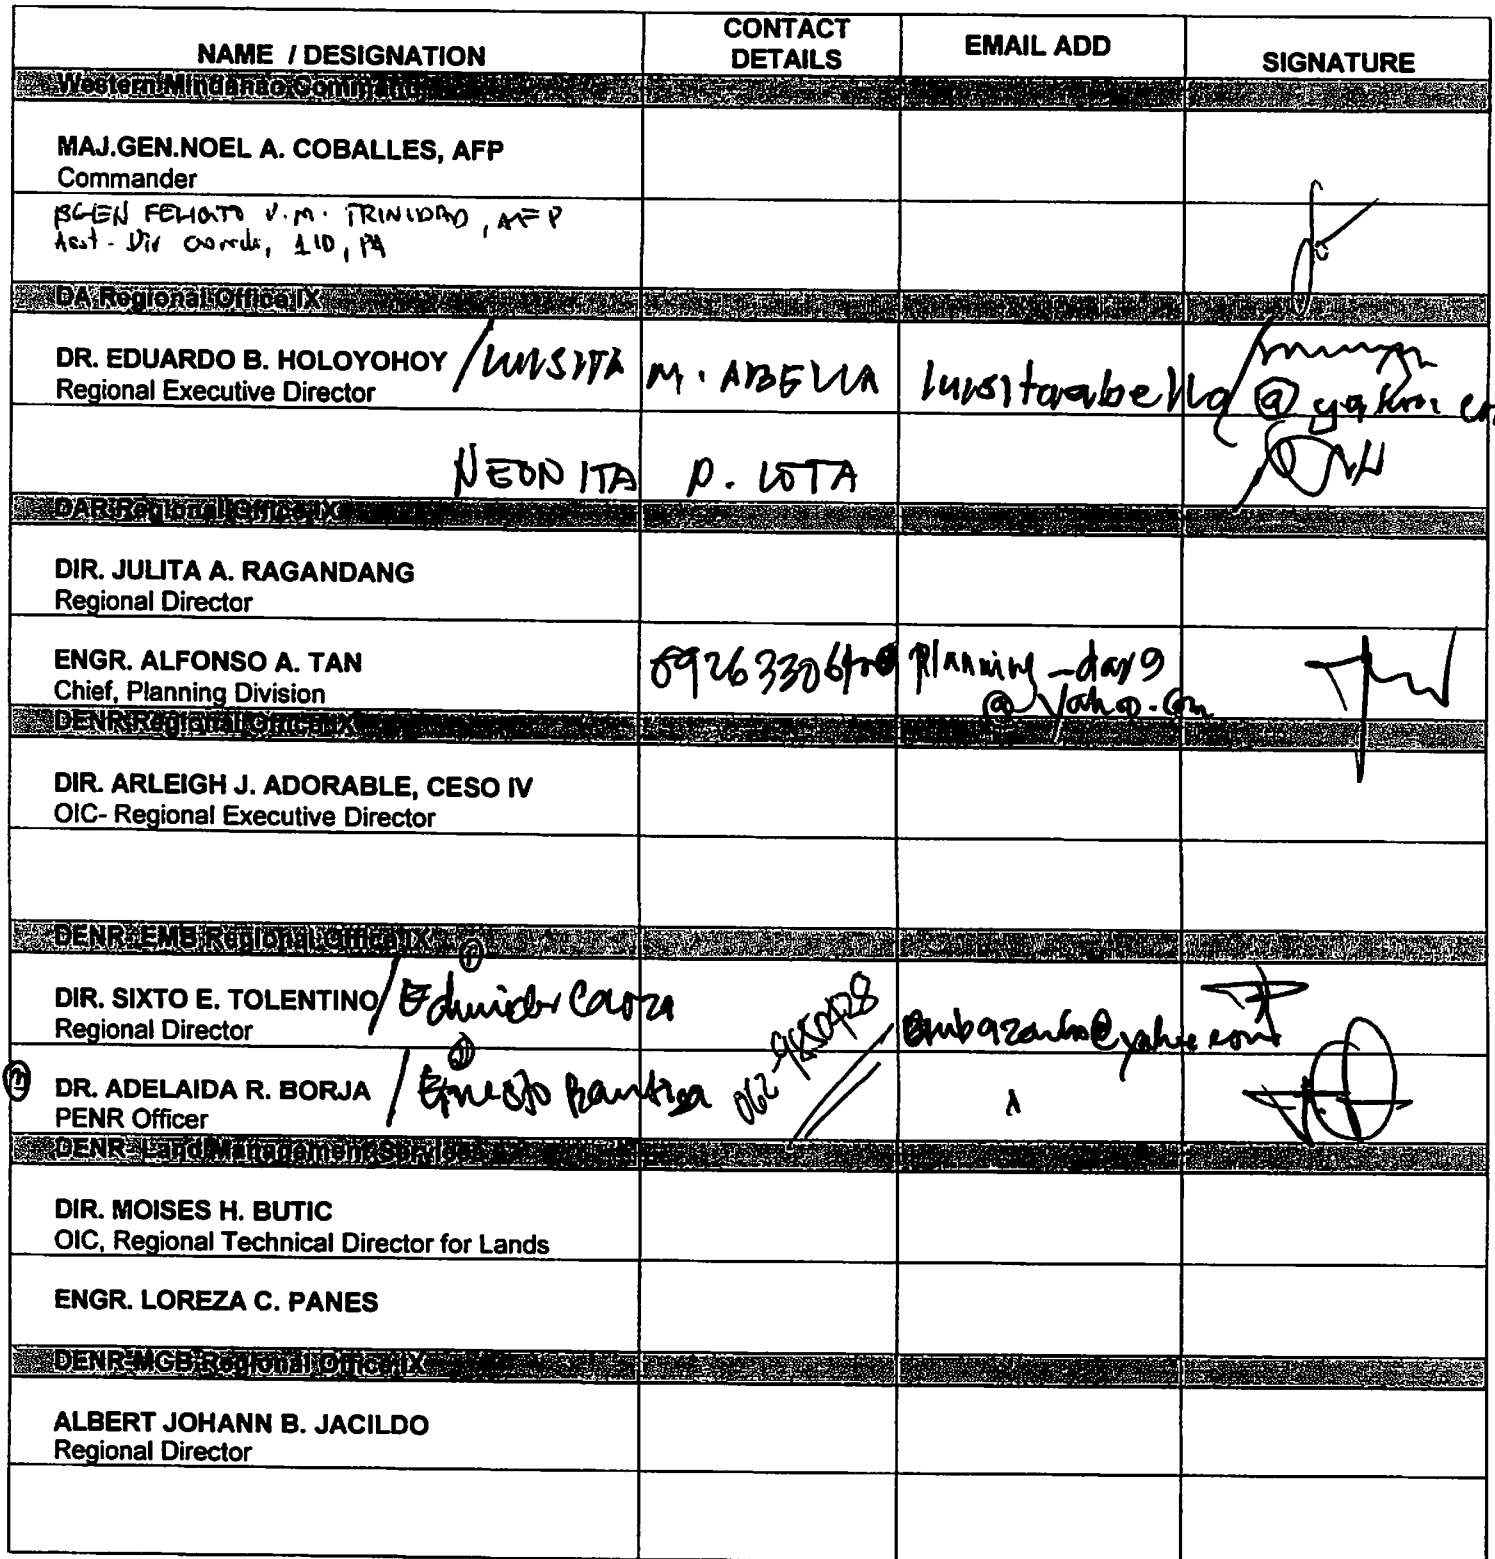 NAME / DESIGNATION
CONTACT DETAILS
EMAIL ADD
SIGNATURE
Western Mindanao Command
MAJ.GEN.NOEL A. COBALLES, AFP
Commander
BGEN V.M. TRINIDAD, AFP
Asst. Div 1ID, PA
DA Regional Office IX
DR. EDUARDO B. HOLOYOHOY / LUISITA M. ABELLA luisitaabella@yahoo.com
Regional Executive Director
NEONITA P. LOTA
DAR Regional Office IX
DIR. JULITA A. RAGANDANG
Regional Director
ENGR. ALFONSO A. TAN planning_dar9
Chief, Planning Division @yahoo.com
DENR Regional Office IX
DIR. ARLEIGH J. ADORABLE, CESO IV
OIC- Regional Executive Director
DENR- EMB Regional Office IX
DIR. SIXTO E. TOLENTINO /
Regional Director
062-9850428
DR. ADELAIDA R. BORJA / Ernesto
PENR Officer
DENR- Land Management Services
DIR. MOISES H. BUTIC
OIC, Regional Technical Director for Lands
ENGR. LOREZA C. PANES
DENR-MGB Regional Office IX
ALBERT JOHANN B. JACILDO
Regional Director